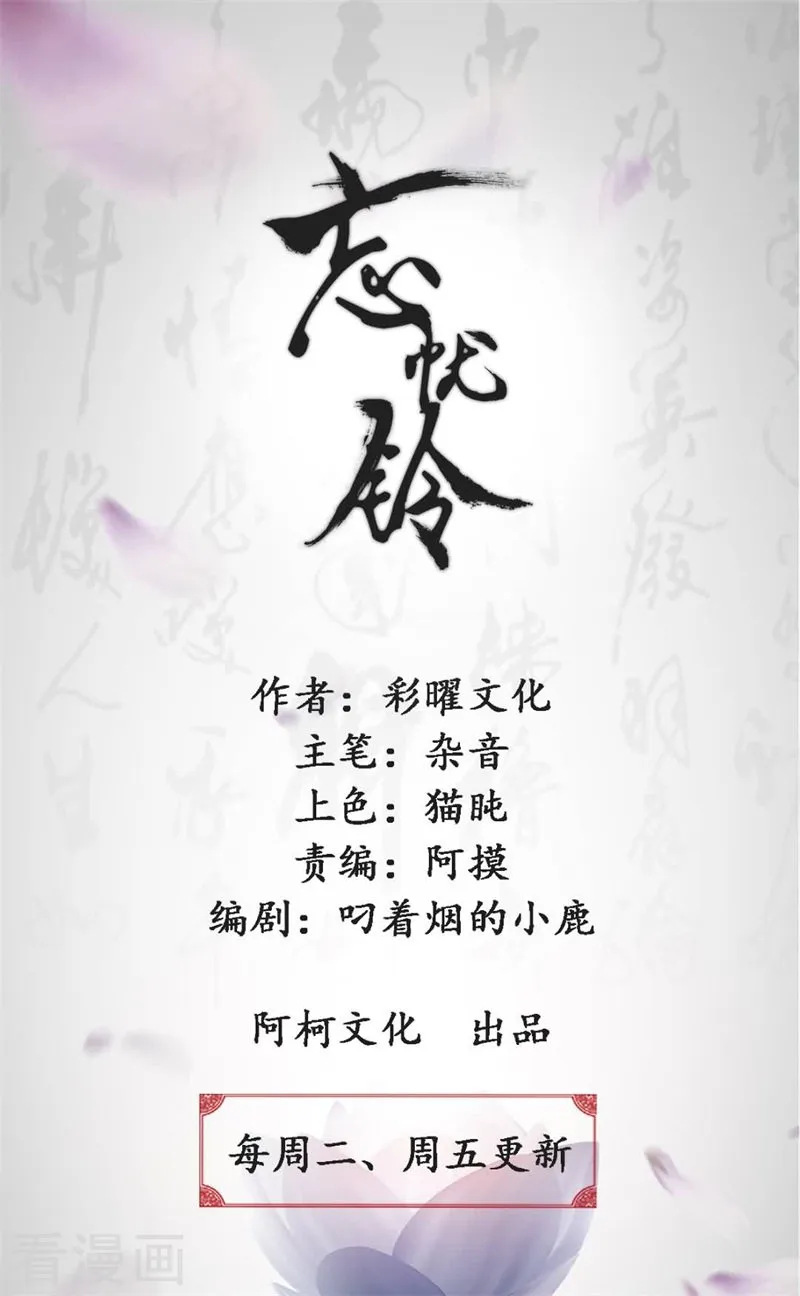 忘忧铃
作者：彩曜文化
主笔：杂音
上色：猫盹
责编：阿摸
编剧：叼着烟的小鹿
阿柯文化 出品
每周二、周五更新
看漫画